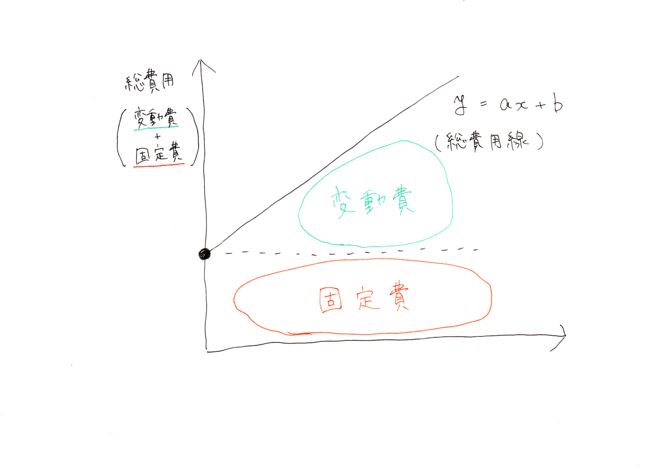 総費用
(変動費
+
固定費)
y = ax + b
(総費用線)
変動費
固定費